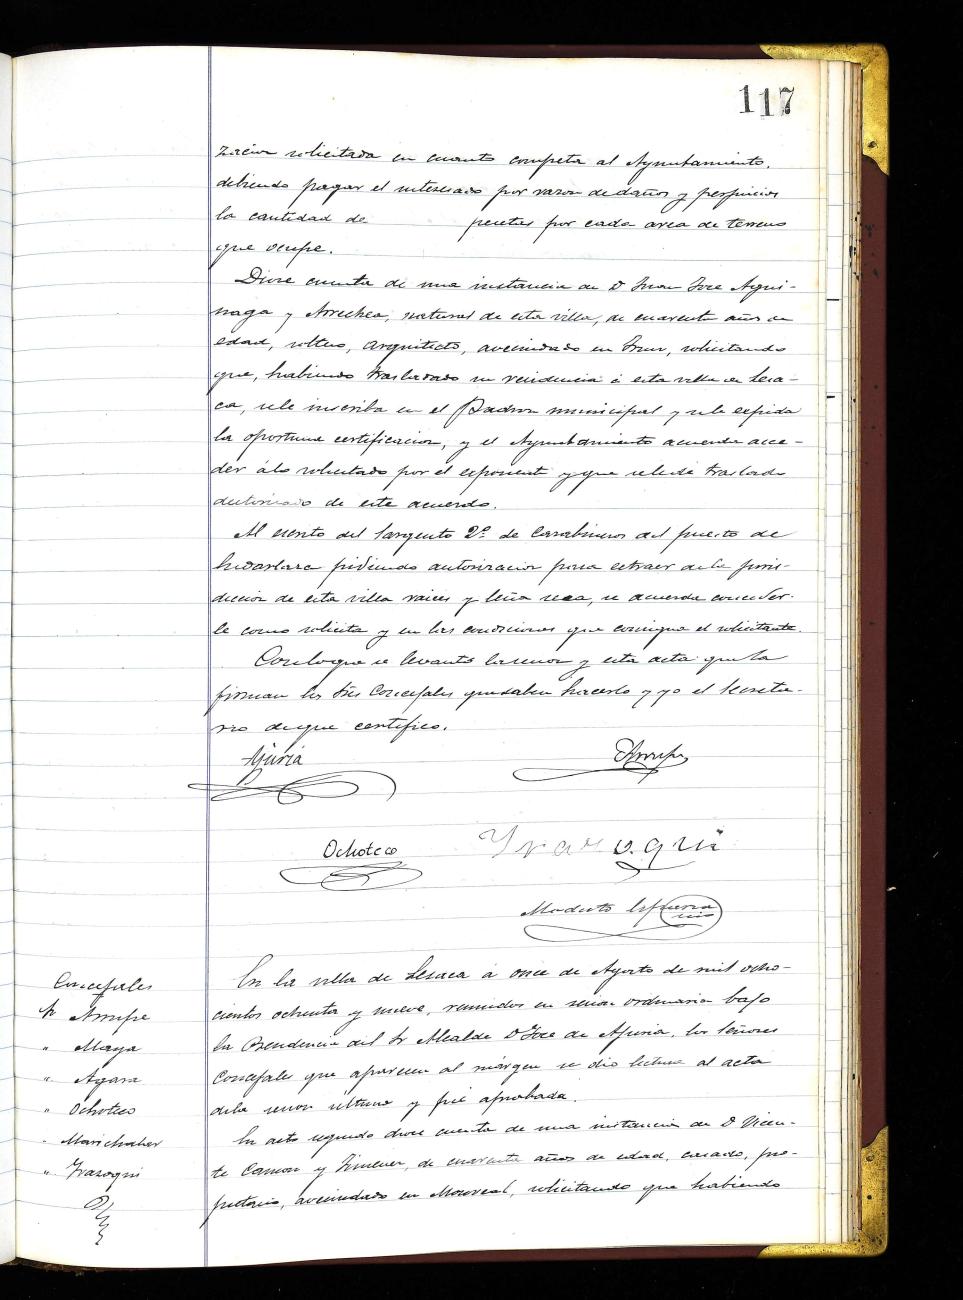 117
zacion solicitada en cuanto competa al Ayuntamiento,
debiendo pagar el interesado por razon de daños y perjuicios
la cantidad de pesetas por cada area de terreno
que ocupe.
Diose cuenta de una instancia de D Juan Jose Agui-
naga y Arrechea, natural de esta villa, de cuarenta años de
edad, soltero, arquitecto, avecindado en Irun, solicitando
que, habiendo trasladado su residencia á esta villa de Lesa-
ca, se le inscriba en el Padron municipal y se le expida
la oportuna certificacion, y el Ayuntamiento acuerda acce-
der á lo solicitado por el exponente y que se le dé traslado
autorizado de este acuerdo.
Al escrito del Sargento 2º de Carabineros del puesto de
Endarlaza pidiendo autorizacion para extraer de la juris-
diccion de esta villa raices y leña seca, se acuerda conceder-
le como solicita y en las condiciones que consigna el solicitante.
Con lo que se levantó la sesion y esta acta que la
firman los tres Concejales que saben hacerlo y yo el Secreta-
rio de que certifico.
Ajuria
Arrupe
Ochoteco
Yrazoqui
Modesto
Concejales
Sr Arrupe
" Maya
" Agara
" Ochoteco
" Marichalar
" Yrazoqui
En la villa de Lesaca á once de Agosto de mil ocho-
cientos ochenta y nueve, reunidos en sesion ordinaria bajo
la Presidencia del Sr Alcalde D Jose de Ajuria, los Señores
Concejales que aparecen al márgen se dio lectura al acta
de la sesion última y fué aprobada.
En acto seguido diose cuenta de una instancia de D Vicen-
te Camon y Gimenez, de cuarenta años de edad, casado, pro-
pietario, avecindado en Monreal, solicitando que habiendo